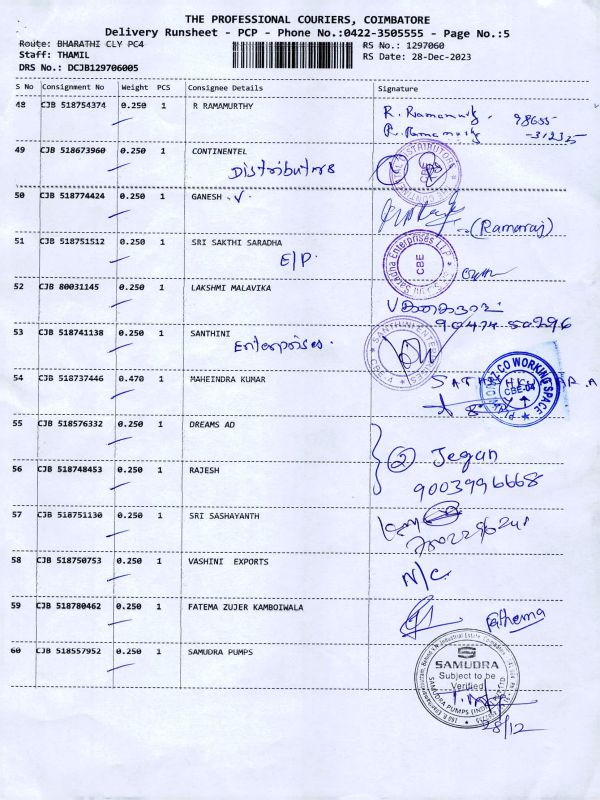 THE PROFESSIONAL COURIERS, COIMBATORE
Delivery Runsheet - PCP - Phone No.:0422-3505555 - Page No.:5
Route: BHARATHI CLY PC4 RS No.: 1297060
Staff: THAMIL RS Date: 28-Dec-2023
DRS No.: DCJB129706005
S No Consignment No Weight PCS Consignee Details Signature
48 CJB 518754374 0.250 1 R RAMAMURTHY R. Ramamurthy 98655
R. Ramamurthy -31235
49 CJB 518673960 0.250 1 CONTINENTEL
Distributors
50 CJB 518774424 0.250 1 GANESH .V. (Ramaraj)
51 CJB 518751512 0.250 1 SRI SAKTHI SARADHA Saradha Enterprises LLP CBE
E/P.
52 CJB 80031145 0.250 1 LAKSHMI MALAVIKA
90474-50296
53 CJB 518741138 0.250 1 SANTHINI
Enterprises.
54 CJB 518737446 0.470 1 MAHEINDRA KUMAR CO WORKING SPACE CBE-04
55 CJB 518576332 0.250 1 DREAMS AD
② Jegan
56 CJB 518748453 0.250 1 RAJESH
9003996668
57 CJB 518751130 0.250 1 SRI SASHAYANTH
58 CJB 518750753 0.250 1 VASHINI EXPORTS
N/C.
59 CJB 518780462 0.250 1 FATEMA ZUJER KAMBOIWALA Fathema
60 CJB 518557952 0.250 1 SAMUDRA PUMPS
SAMUDRA
Subject to be
Verified
SAMUDRA PUMPS (INDIA) PVT LTD
28/12